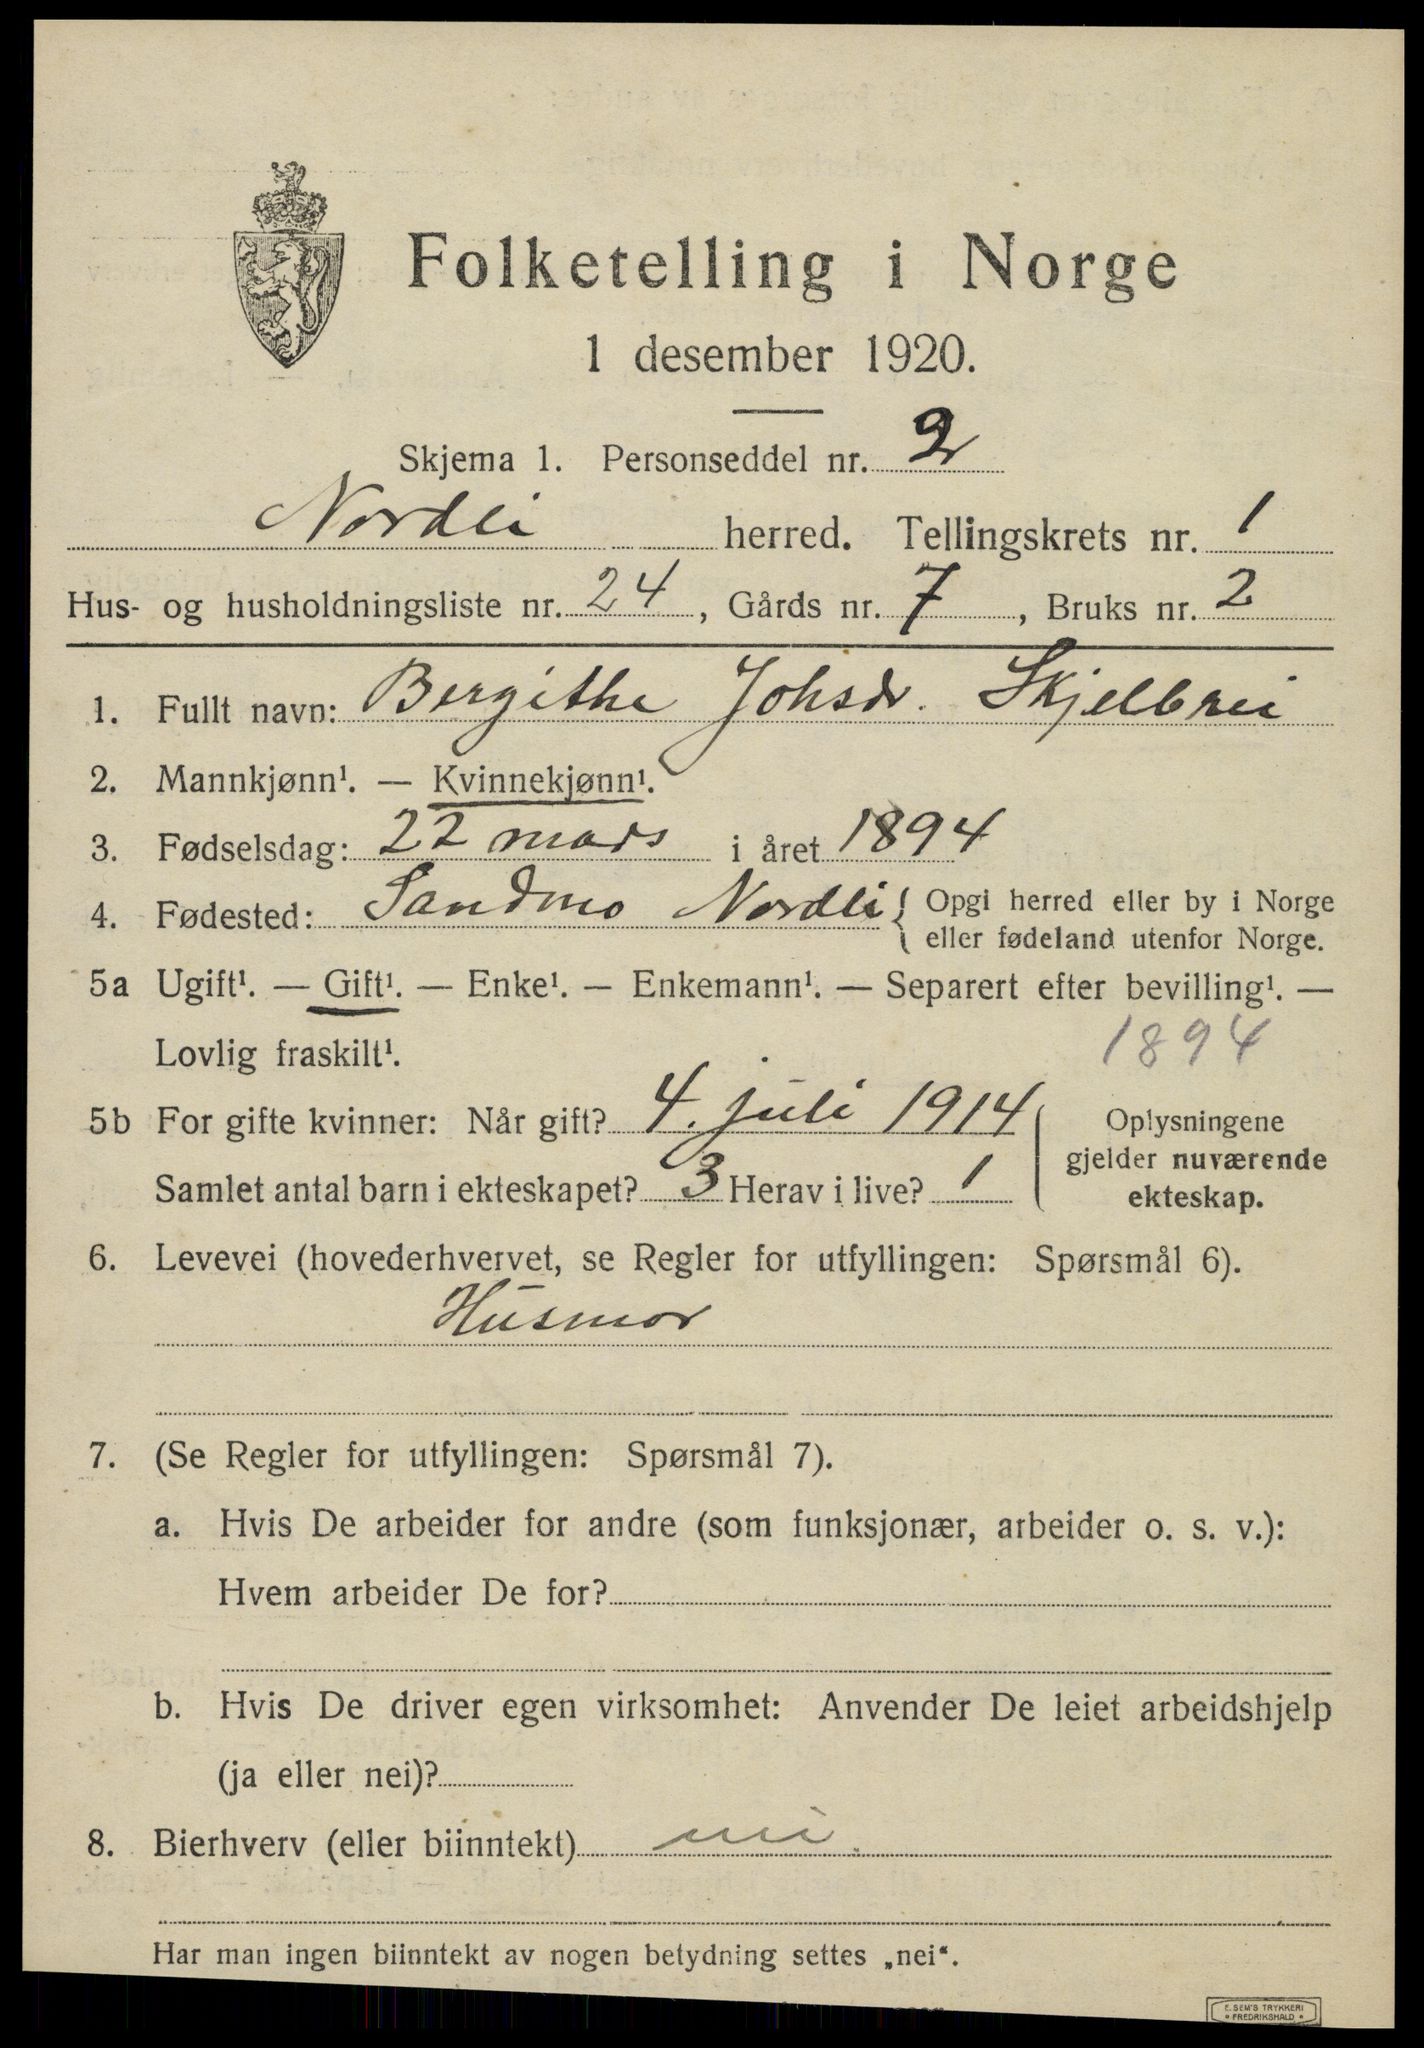 Folketelling i Norge
1 desember 1920.
Skjema 1. Personseddel nr. 2
Nordli herred. Tellingskrets nr. 1
Hus- og husholdningsliste nr. 24, Gårds nr. 7, Bruks nr. 2
1. Fullt navn: Bergithe Johsdr. Skjelbrei
2. Mannkjønn¹. — Kvinnekjønn¹.
3. Fødselsdag: 22 mars i året 1894
4. Fødested: Sandmo Nordli { Opgi herred eller by i Norge
eller fødeland utenfor Norge.
5a Ugift¹. — Gift¹. — Enke¹. — Enkemann¹. — Separert efter bevilling¹. —
Lovlig fraskilt¹. 1894
5b For gifte kvinner: Når gift? 4. juli 1914
Samlet antal barn i ekteskapet? 3 Herav i live? 1
Oplysningene
gjelder nuværende
ekteskap.
6. Levevei (hovederhvervet, se Regler for utfyllingen: Spørsmål 6).
Husmor
7. (Se Regler for utfyllingen: Spørsmål 7).
a. Hvis De arbeider for andre (som funksjonær, arbeider o. s. v.):
Hvem arbeider De for?
b. Hvis De driver egen virksomhet: Anvender De leiet arbeidshjelp
(ja eller nei)?
8. Bierhverv (eller biinntekt) nei.
Har man ingen biinntekt av nogen betydning settes „nei“.
E. SEM'S TRYKKERI
* FREDRIKSHALD *